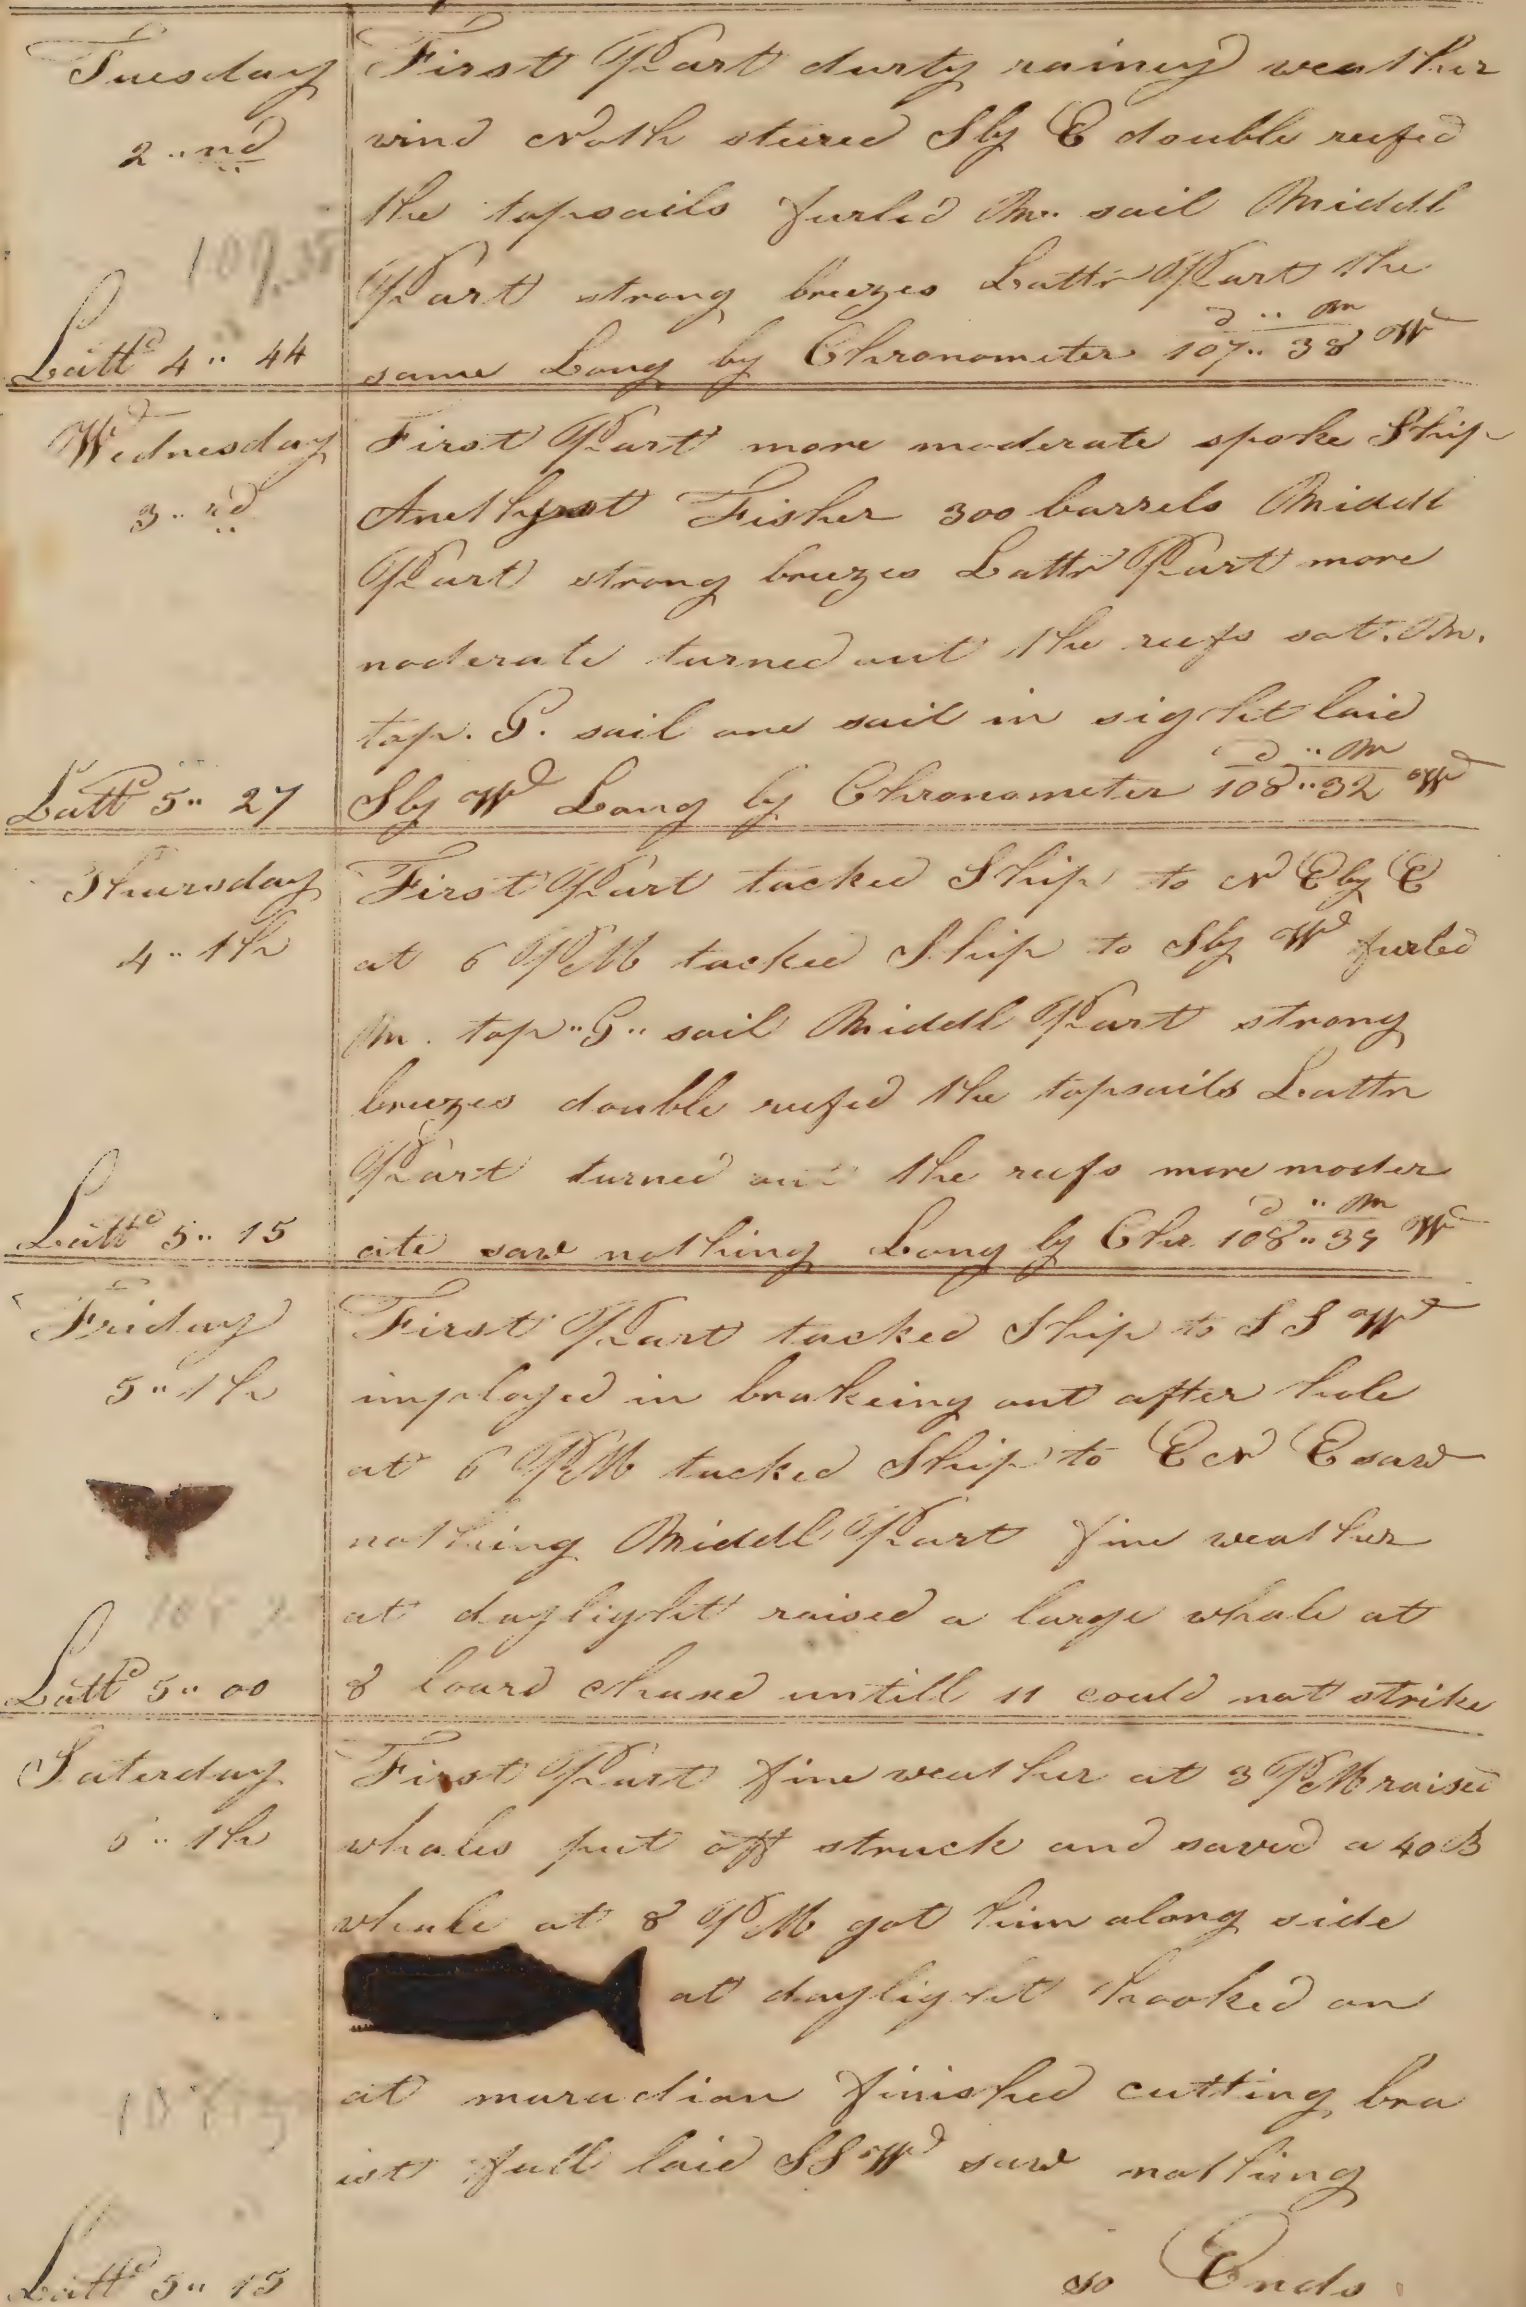 Tuesday
2..nd
Lattd 4.. 44
First Part durty rainey weather
wind North steered Sby E double reefed
the topsails furled M. sail Middl
Part strong breezes Lattr Part the
d .. m
same Long by Chronometer 107.. 38 W
Wednesday
3.. rd
Lattd 5.. 27
First Part more moderate spoke Ship
Amethyst Fisher 300 barrels Middl
Part strong breezes Lattr Part more
moderate turned out the reefs sot. M.
top. G. sail one sail in sight laid
d .. m
Sby Wd Long by Chronometer 108..32 Wd
Thursday
4.. th
Lattd 5.. 15
First Part tacked Ship to N E by E
at 6 PM tacked Ship to Sby Wd furled
M. top..G.. sail Middl Part strong
breezes double reefed the topsails Lattr
Part turned out the reefs more moder
d .. m
ate saw nothing Long by Chr. 108..39 Wd
Friday
5.. th
Lattd 5.. 00
First Part tacked Ship to S S Wd
imployed in brakeing out after hole
at 6 PM tacked Ship to E N E saw
nothing Middl Part fine weather
at daylight raised a large whale at
8 loard chased untill 11 could not strike
Saterday
6.. th
Lattd 5.. 15
First Part fine weather at 3 PM raised
whales put off struck and saved a 40 B
whale at 8 PM got him along side
at daylight hooked on
at maradian finished cutting bra
ist full laid S S Wd saw nothing
so Ends